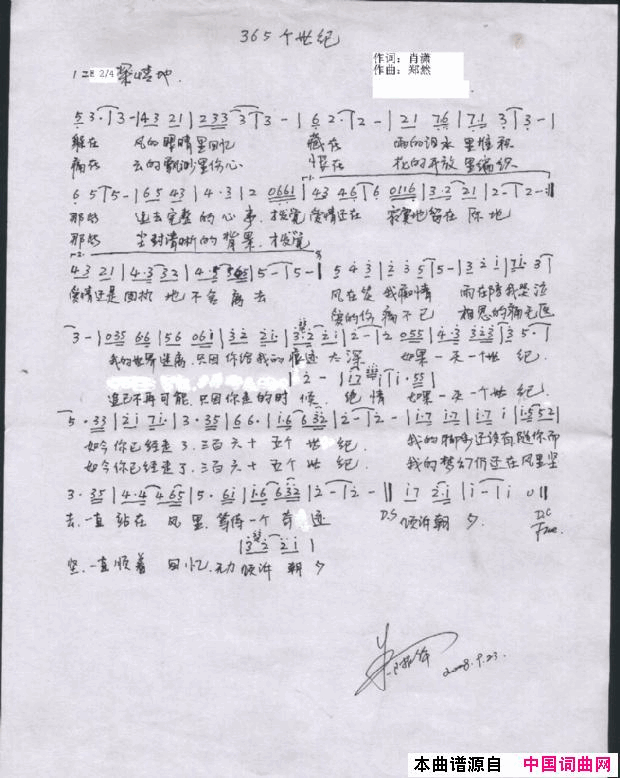 365个世纪
作词：肖潇
作曲：郑然
1=E 2/4 深情地
5 3· | 3 - | 43 21 | 233 3 | 3 - | 6 2· | 2 - | 21 76 | 7·1 3 | 3 - |
躲在 风的眼睛里回忆 藏在 雨的泪水里堆积
痛在 云的飘渺里伤心 恨在 花的开放里编织
6 5 | 5 - | 65 43 | 4·3 | 2 0661 | 43 46 | 6 0116 | 3·2 21 | 2 - | 2 -
那些 过去完整的心事，才发觉爱情还在 寂寞地留在原地
那些 尘封清晰的背景，才发觉
43 21 | 4·3 32 | 4·5 565 | 5 - | 5 - | 5 4 3 | 2 3 5 | 5 - | 3 2 1 | 7 1· 3
爱情还是固执地不舍离去 风在笑我痴情 雨在陪我哭泣
爱的伤痛不已 相思的痛无医
3 - | 035 66 | 56 061 | 32 21· | 3·2 21 | 2 - | 2 055 | 4·3 323 | 3 5·
我的世界迷离，只因你给我的痕迹太深 如果一天一个世纪，
| 2 - | 17 1 | 1· 55 |
追忆不再可能，只因你走的时候，绝情 如果一天一个世纪，
5·33 | 21 71· | 3·35 | 66· | 1·6 632 | 2 - | 2 - | 1·7 17 | 17 1 | 1·552 |
如今你已经走了，三百六十五个世纪， 我的脚步还没有随你而
如今你已经走了，三百六十五个世纪， 我的梦幻仍还在风里坚
3·35 | 4·4 465 | 5·61 | 1·6 632 | 2 - | 2 - || 17 2·1 | 1 - | 1 0 ||
去，一直站在风里，等待一个奇迹 D.S 倾诉朝夕 D.C
Fine
| 3 2 21 |
坚，一直顺着回忆，无力倾诉朝夕
2008.9.23.
本曲谱源自 中国词曲网